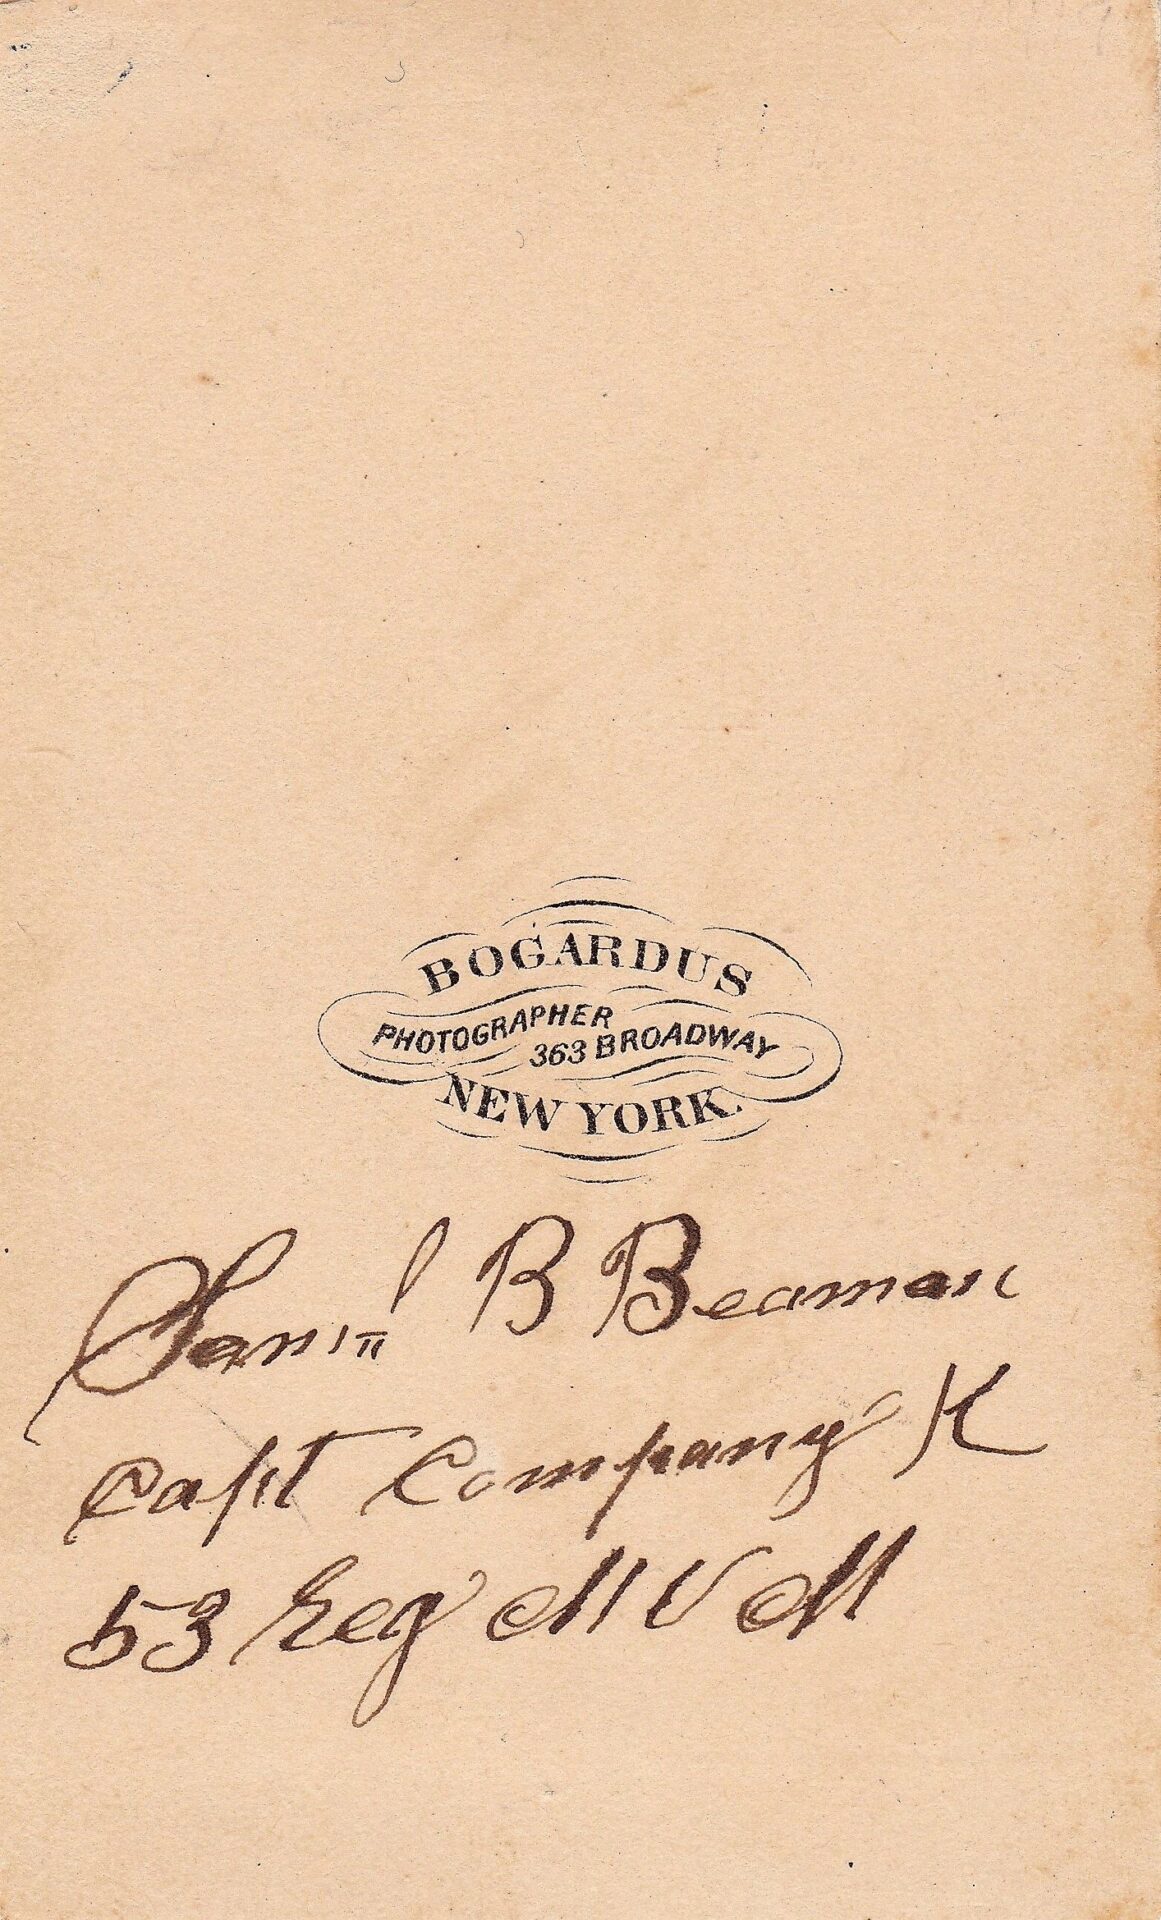 BOGARDUS
PHOTOGRAPHER
363 BROADWAY
NEW YORK.
Sam'l B Beaman
Capt Company K
53 Reg M V M